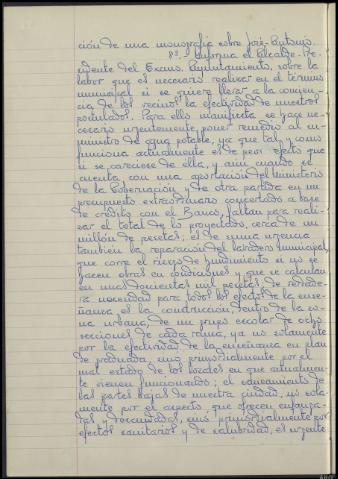 ción de una monografía sobre José-Antonio.
8º.- Informa el Alcalde-Pre-
sidente del Excmo. Ayuntamiento, sobre la
labor que es necesario realizar en el término
municipal si se quiere llevar a la concien-
cia de los vecinos la efectividad de nuestros
postulados. Para ello manifiesta se hace ne-
cesario urgentemente poner remedio al su-
ministro de agua potable, ya que tal y como
funciona actualmente es de peor efecto que
si se careciese de ella, y aún cuando se
cuenta con una aportación del Ministerio
de la Gobernación y de otra partida en un
presupuesto extraordinario concertado a base
de crédito con el Banco, faltan para reali-
zar el total de lo proyectado, cerca de un
millón de pesetas; es de suma urgencia
también la reparación del lavadero municipal,
que corre el riesgo de hundimiento si no se
hacen obras en condiciones y que se calculan
en unas doscientas mil pesetas; de verdade-
ra necesidad para todos los efectos de la ense-
ñanza, es la construcción, dentro de la zo-
na urbana, de un grupo escolar de ocho
secciones de cada rama, ya no solamente
por la efectividad de la enseñanza en plan
de graduada, sino primordialmente por el
mal estado de los locales en que actualmen-
te vienen funcionando; el saneamiento de
las partes bajas de nuestra ciudad, no sola-
mente por el aspecto que ofrecen
y descuidadas, sino primordialmente por
efectos sanitarios y de salubridad, es urgente